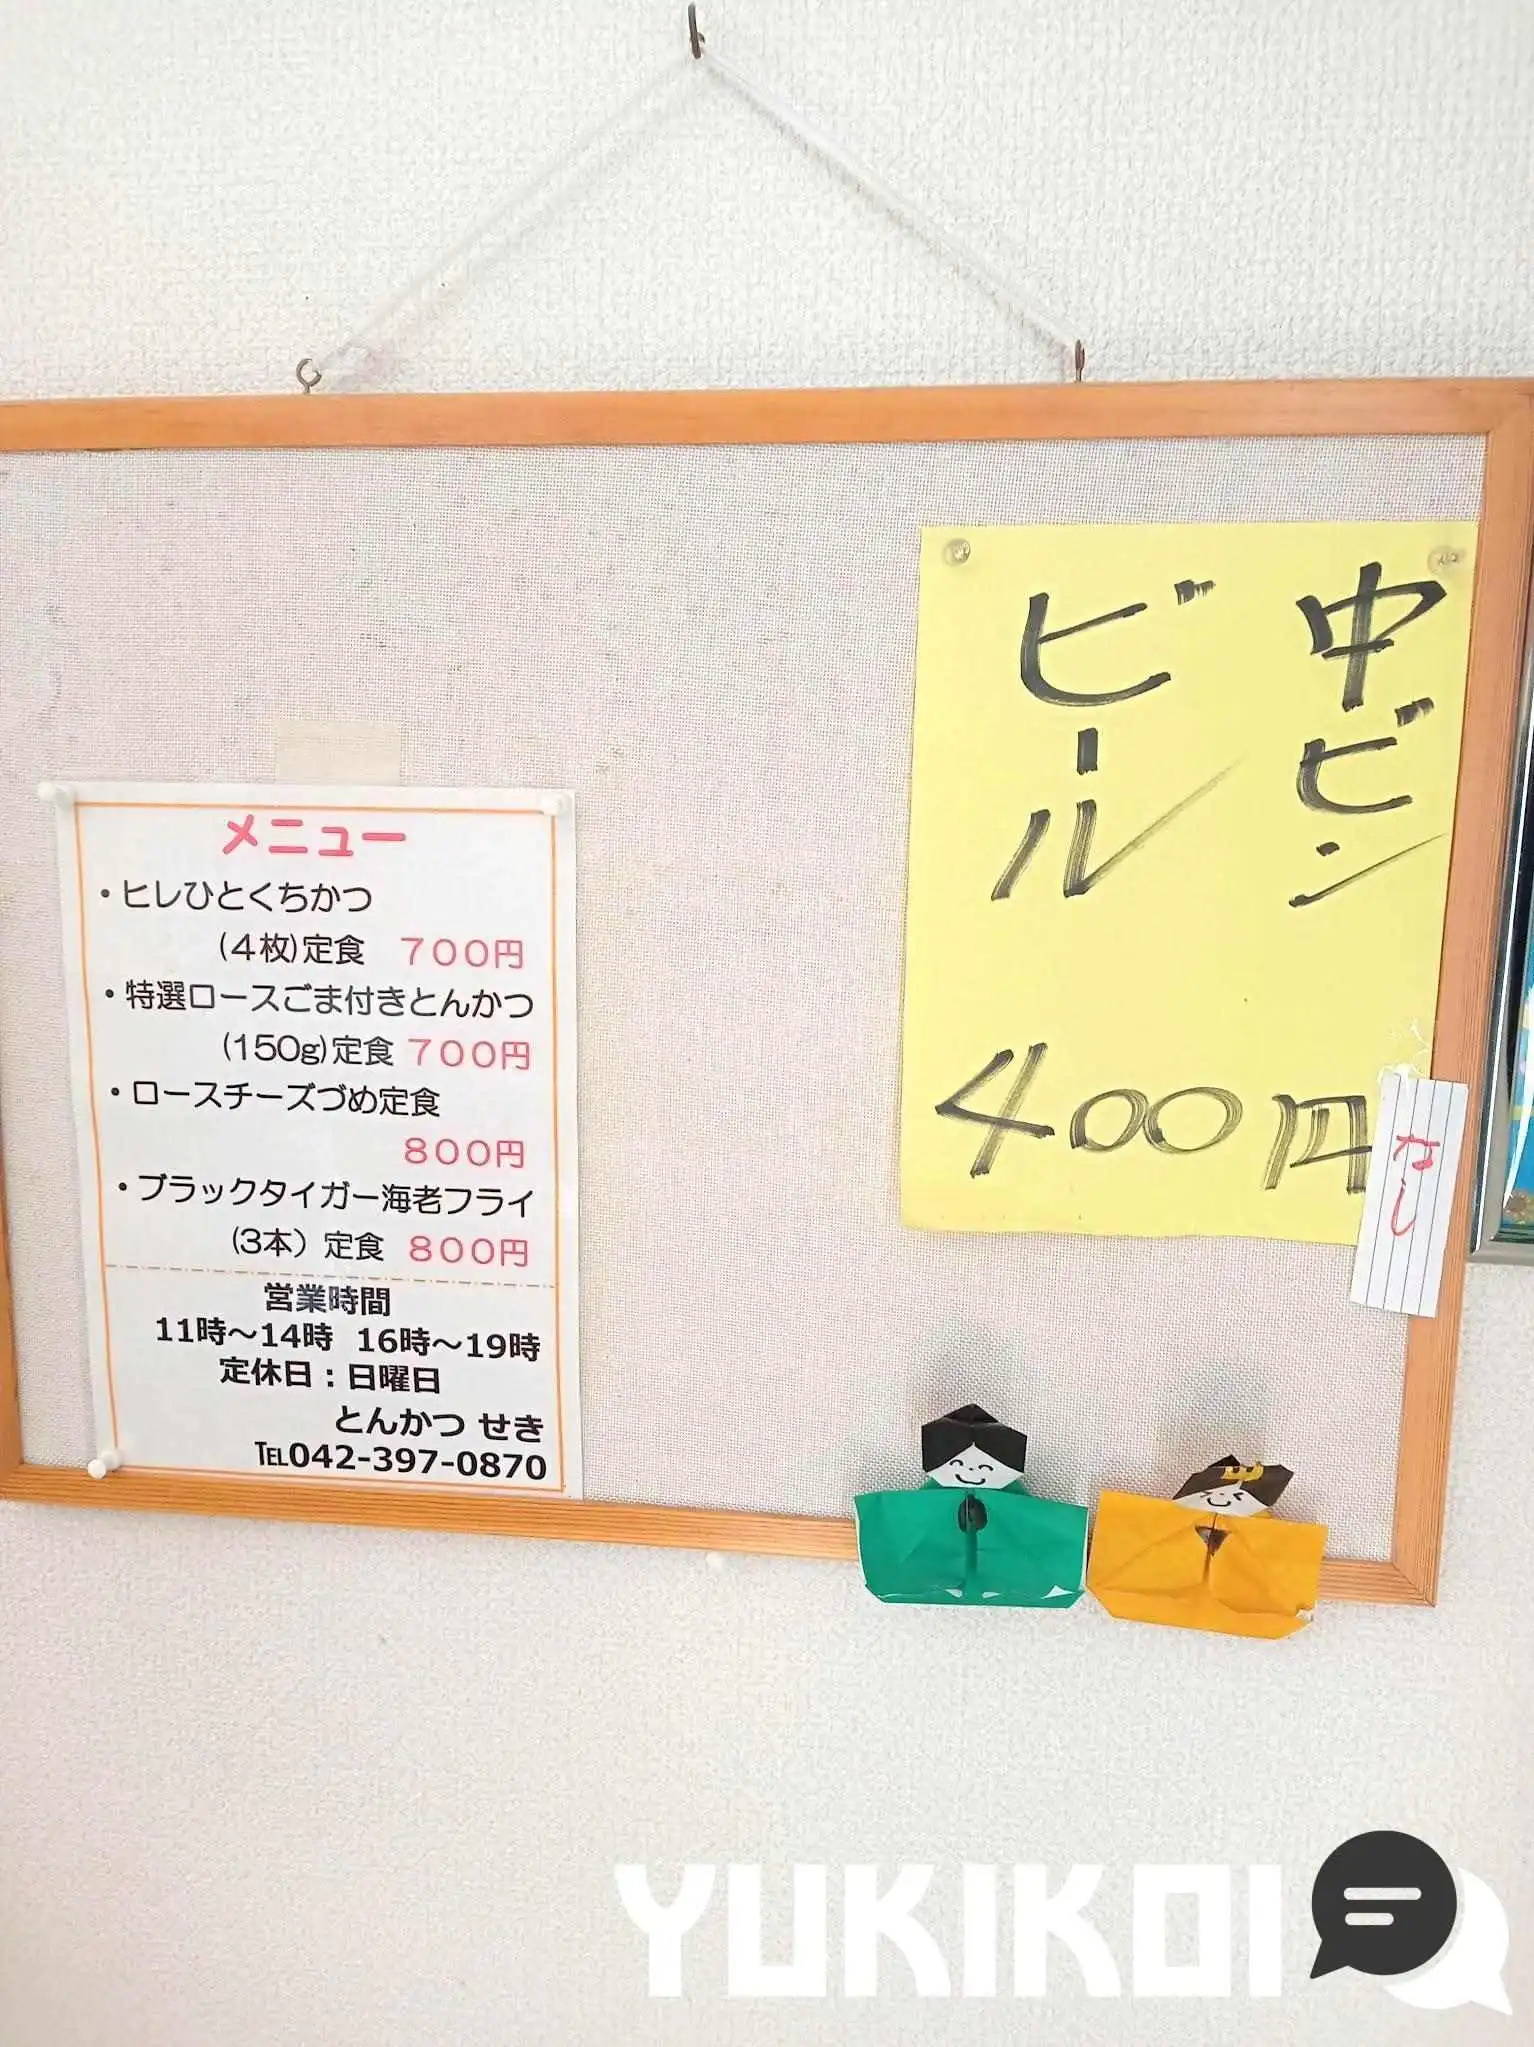 メニュー
・ヒレひとくちかつ
(4枚)定食 700円
・特選ロースごま付きとんかつ
(150g)定食 700円
・ロースチーズづめ定食
800円
・ブラックタイガー海老フライ
(3本）定食 800円
営業時間
11時～14時 16時～19時
定休日：日曜日
とんかつ せき
℡042-397-0870
中ビン
ビール
400円
なし
YUKIKOI